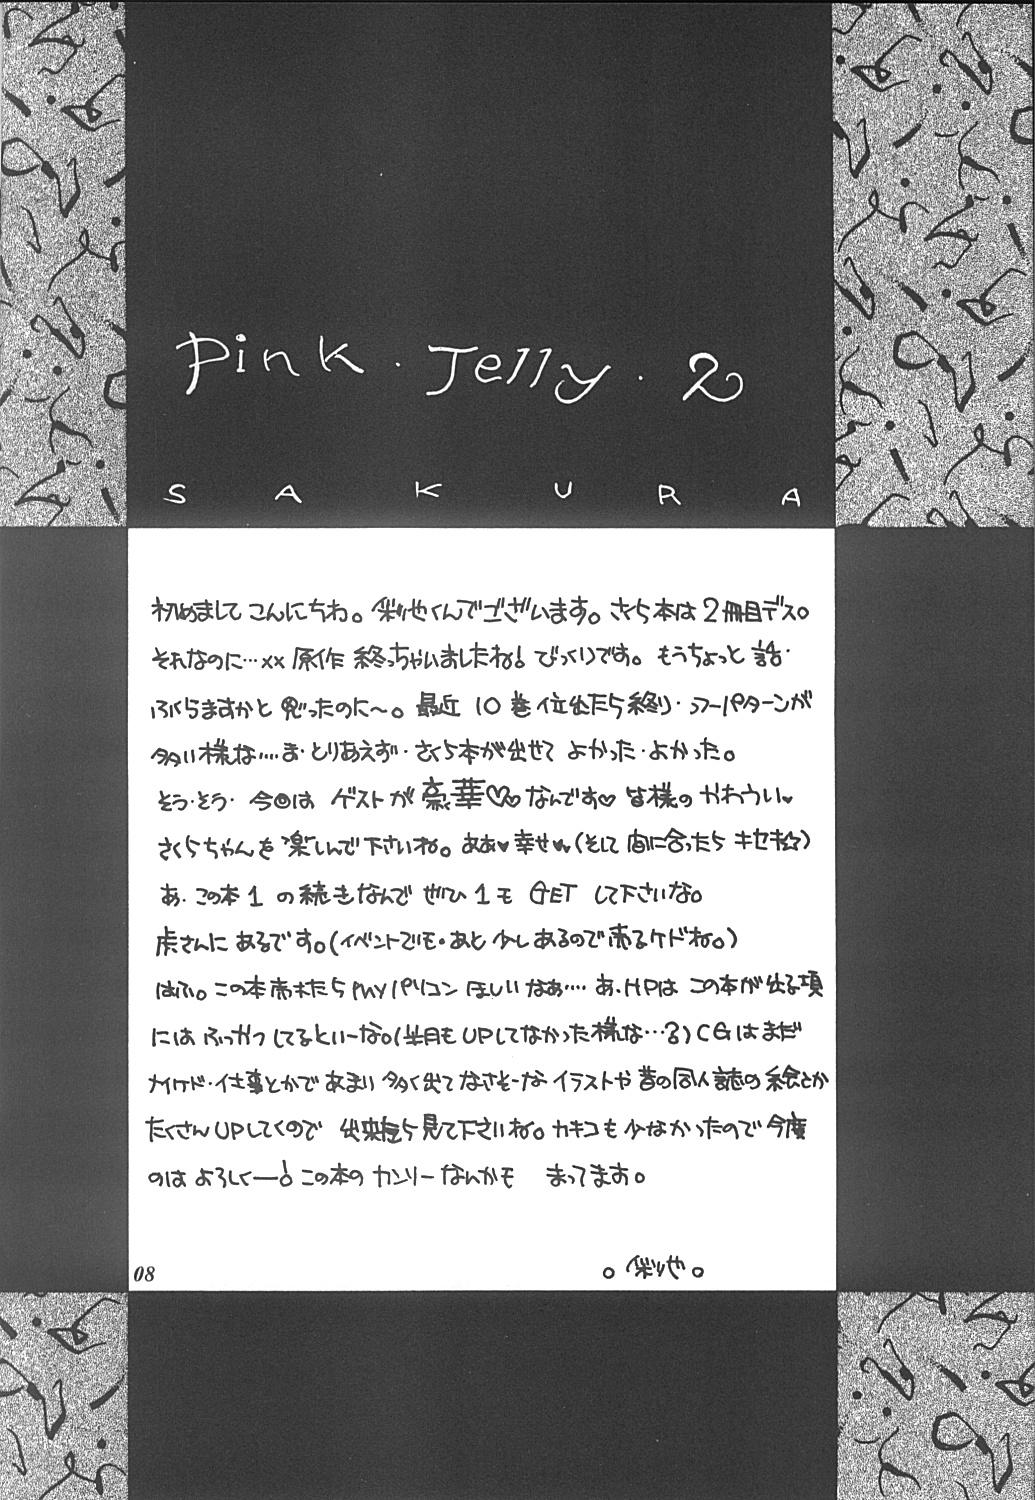 Pink・Jelly・2
SAKURA
初めまして こんにちわ。彩也くんでございます。さくら本は2冊目デス。
それなのに…xx 原作 終っちゃいましたね! びっくりです。もうちょっと 話・
ぶくらますかと 思ったのに〜。最近 10巻位出たら終り・ってーパターンが
多い様な….ま・とりあえず・さくら本が出せて よかった・よかった。
そう・そう・今回は ゲストが豪華♡なんです♡ 皆様の かわうい♥
さくらちゃんを 楽しんで下さいね。ああ♥幸せ♥(そして 間に合ったら キセキ☆)
あ・この本1の続きなんで ぜひ1も GETして下さいな。
虎さんにあるです。(イベントでも・あと少しあるので売るケドね。)
はふ。この本売れたら MYパソコン ほしいなぁ…. あ・HPは この本が出る頃
にはふっかつしてるといーな。(半月もUPしてなかった様な…3)CGはまだ
ナイケド・仕事とかであまり多く出てなさそーな イラストや 昔の同人誌の絵とか
たくさんUPしてくので 出来たら見て下さいね。カキコも少なかったので今度
のは よろしくー! この本の カンソーなんかも まってます。
08